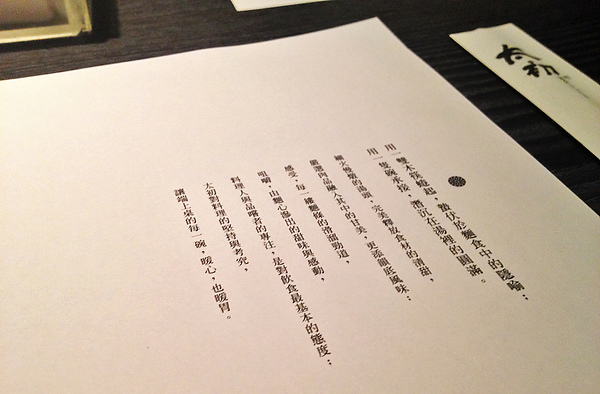 用一雙木筷翹起,蟄伏於麵食中的隱喻;
用一隻碗承接,潛沉在湯裡的圓滿。
細火慢燉的湯頭,完美釋放食材的清甜,
嚴選肉品融入其中的甘美,更添韻底風味;
感受,每一縷麵條的滑溜勁道,
咀嚼,由麵心滲出的甜味與感動,
料理人與品嚐者的專注,是對飲食最基本的態度;
太初對料理的堅持與考究,
讓端上桌的每一碗,暖心,也暖胃。
太初